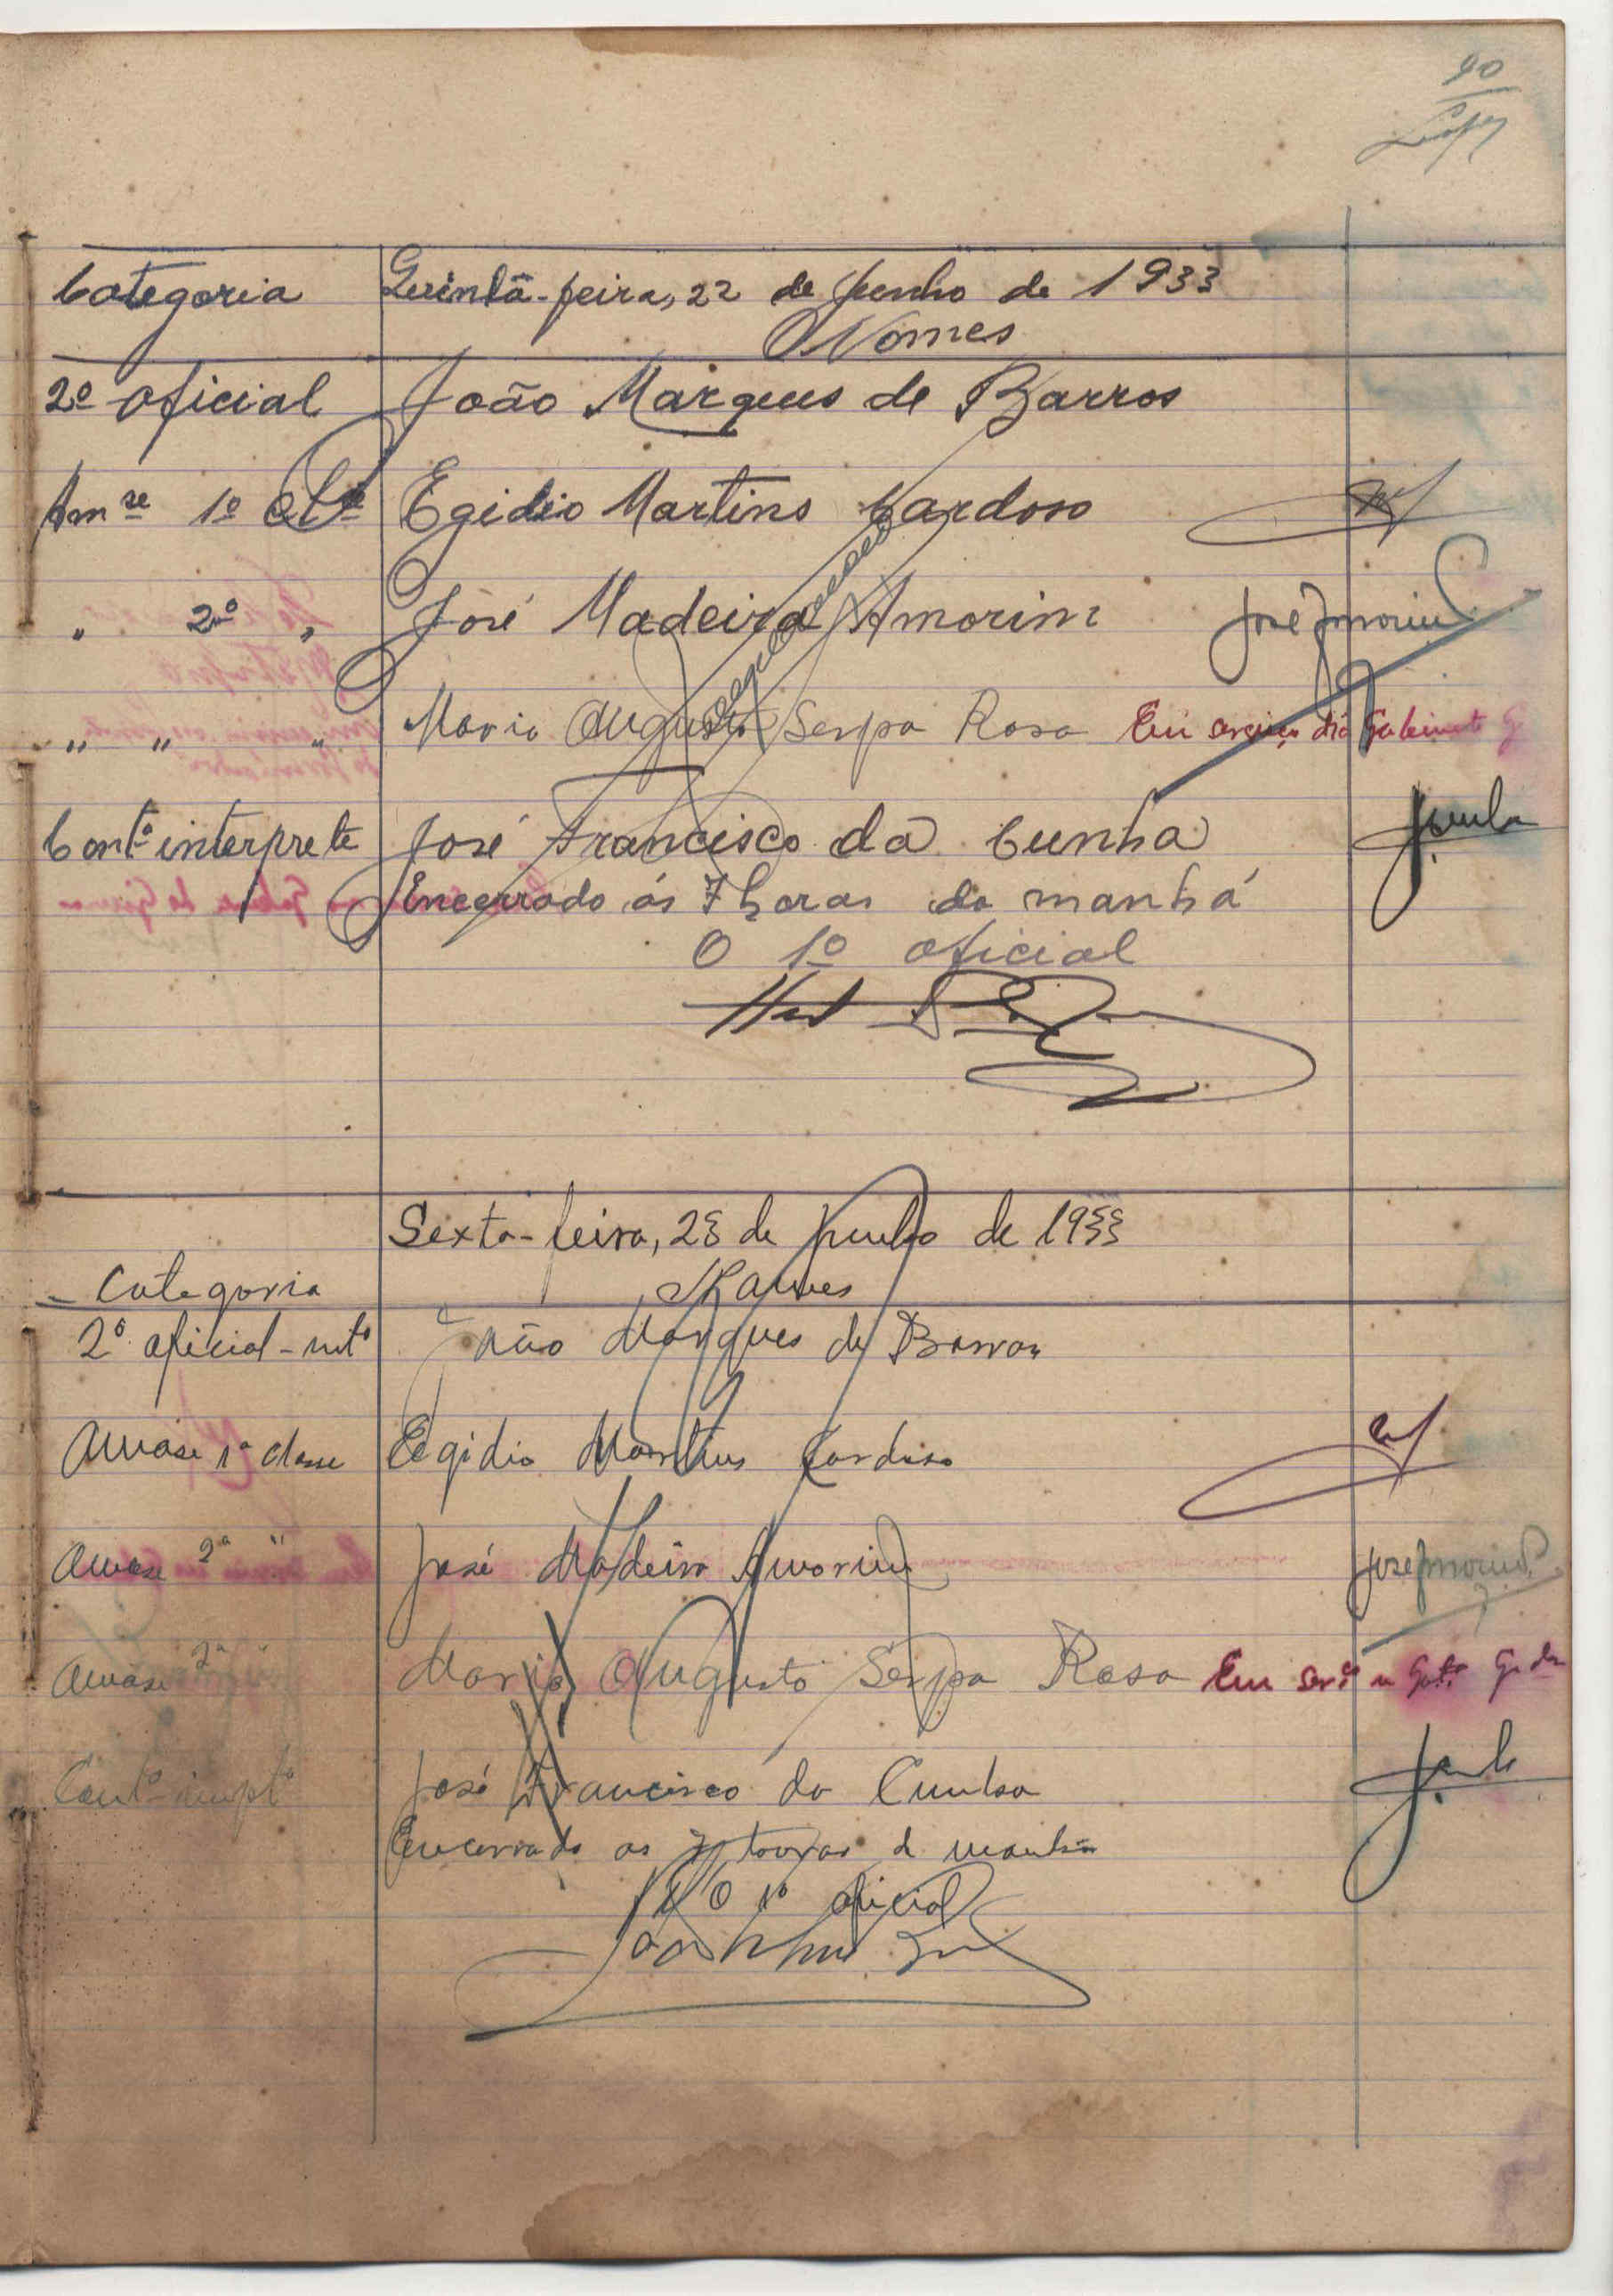 90
Lopes
Categoria Quinta-feira, 22 de Junho de 1933
Nomes
2º oficial João Marques de Barros
Amse 1ª Cle Egidio Martins Cardoso
" 2ª " José Madeira Amorim José Amorim
" " " Mario Augusto Serpa Rosa Em serviço do Gabinete
Contº interprete José Francisco da Cunha JCunha
Encerrado ás 7 horas da manhá
O 1º oficial
Sexta-feira, 23 de Junho de 1933
Categoria Nomes
2º oficial - intº João Marques de Barros
Amase 1ª classe Egidio Martins Cardoso
Amase 2ª " José Madeira Amorim José Amorim
Amase 2ª " Mario Augusto Serpa Rosa Em serº
Contº intptº José Francisco da Cunha
Encerrado as 7 horas da manhã
O 1º oficial